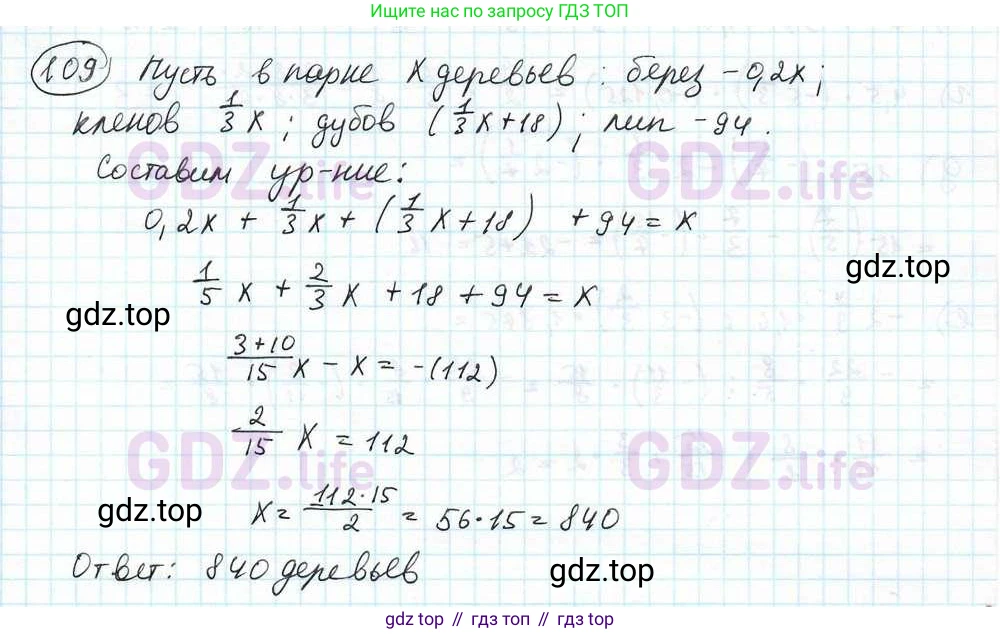 Ищите нас по запросу ГДЗ ТОП
109) Пусть в парке x деревьев : берез - 0,2x;
кленов 1/3 x ; дубов (1/3 x+18) ; лип - 94.
Составим ур-ние:
GDZ.life GDZ.life
0,2x + 1/3 x + (1/3 x+18) + 94 = x
gdz.top
1/5 x + 2/3 x + 18 + 94 = x
gdz.top
3+10/15 x - x = -(112)
2/15 x = 112
GDZ.life GDZ.life
gdz.top
x = 112·15/2 = 56·15 = 840
Ответ: 840 деревьев
gdz.top
gdz.top // гдз топ // gdz.top // гдз топ